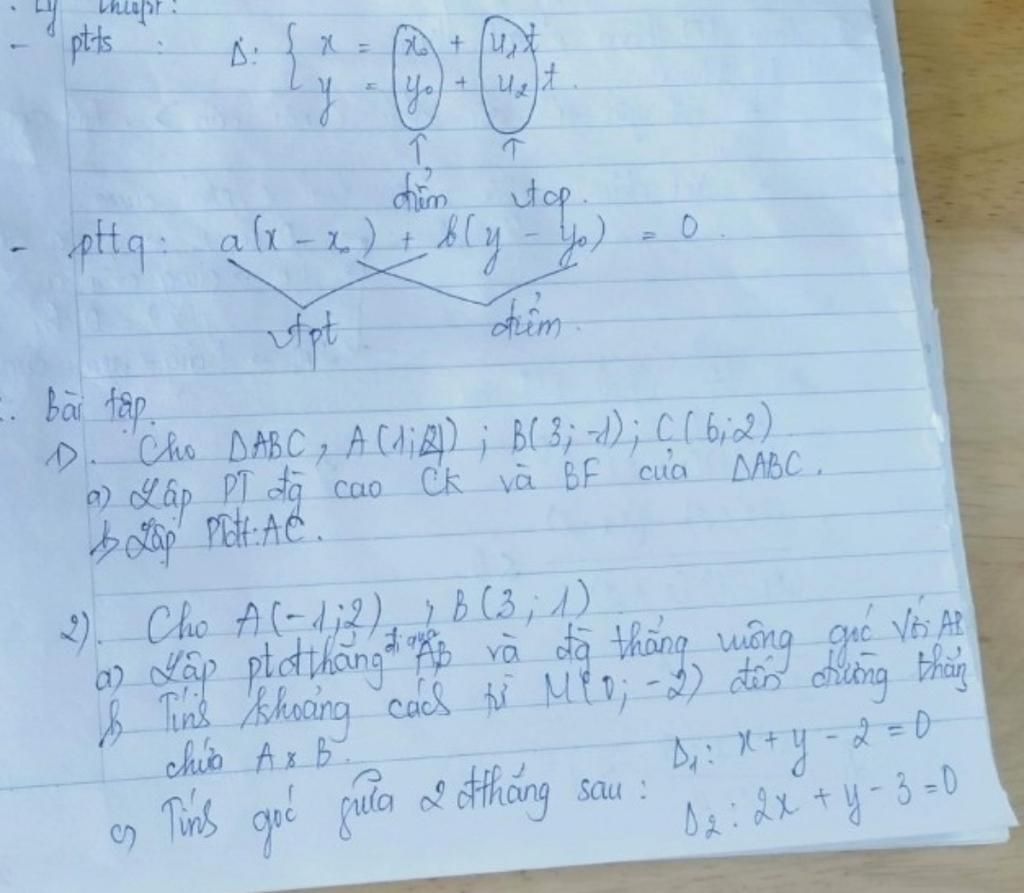 . Lý thuyết:
- ptts : Δ: { x = x₀ + u₁t
y = y₀ + u₂t.
↑ ↑
điểm vtcp.
- pttq: a(x - x₀) + b(y - y₀) = 0.
vtpt điểm.
. Bài tập.
1). Cho ΔABC, A(1; ); B(3; -1); C(6; 2)
a) Lập PT đg cao CK và BF của ΔABC.
b) Lập PTĐT: AC.
2). Cho A(-1; 2), B(3; 1)
a) Lập ptđthẳng đi qua AB và đg thẳng vuông góc với AB
b) Tính khoảng cách từ M(0; -2) đến đường thẳng
chứa A & B.
c) Tính góc giữa 2 đthẳng sau: Δ₁: x + y - 2 = 0
Δ₂: 2x + y - 3 = 0